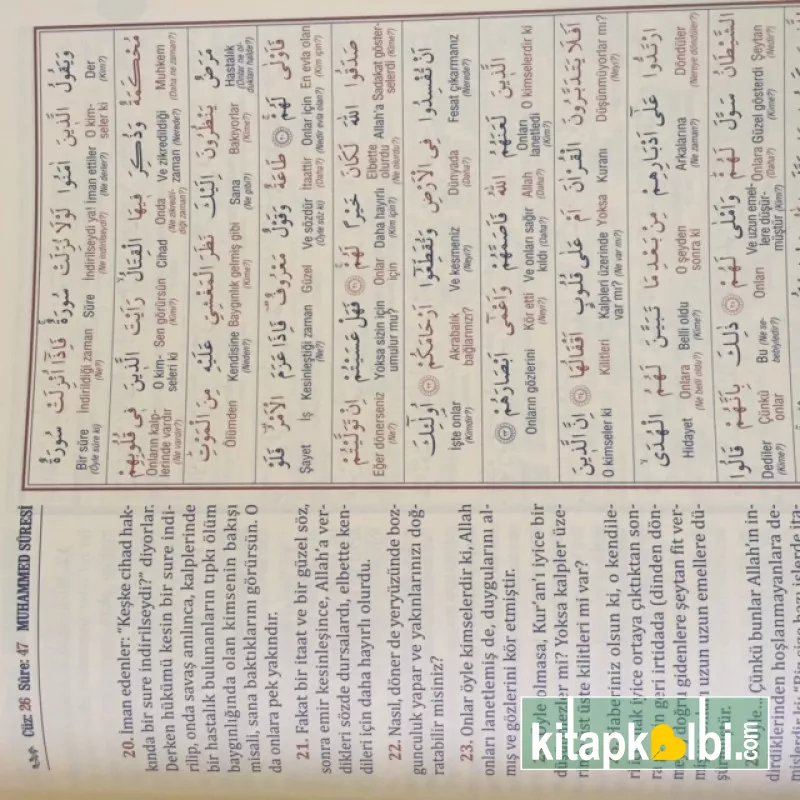 Cüz: 26 Sûre: 47 MUHAMMED SÛRESİ
20. İman edenler: "Keşke cihad hak-
kında bir sure indirilseydi?" diyorlar.
Derken hükümü kesin bir sure indi-
rilip, onda savaş anılınca, kalplerinde
bir hastalık bulunanların tıpkı ölüm
baygınlığında olan kimsenin bakışı
misali, sana baktıklarını görürsün. O
da onlara pek yakındır.
21. Fakat bir itaat ve bir güzel söz,
sonra emir kesinleşince, Allah'a ver-
dikleri sözde dursalardı, elbette ken-
dileri için daha hayırlı olurdu.
22. Nasıl, döner de yeryüzünde boz-
gunculuk yapar ve yakınlarınızı doğ-
ratabilir misiniz?
23. Onlar öyle kimselerdir ki, Allah
onları lanetlemiş de, duygularını al-
mış ve gözlerini kör etmiştir.
olmasa, Kur'an'ı iyice bir
mi? Yoksa kalpler üze-
üst üste kilitleri mi var?
Haberiniz olsun ki, o kendile-
iyice ortaya çıktıktan son-
geri irtidada (dinden dön-
doğru gidenlere şeytan fit ver-
uzun uzun emellere dü-
Çünkü bunlar Allah'ın in-
dirdiklerinden hoşlanmayanlara de-
وَيَقُولُ الَّذِينَ اٰمَنُوا لَوْلَا نُزِّلَتْ سُورَةٌ فَاِذَٓا اُنْزِلَتْ سُورَةٌ
Der O kim-seler ki İman ettiler İndirilseydi ya! Süre İndirildiği zaman Bir süre
(Kim?) (Ne derler?) (Ne indirilseydi?) (Ne?) (Öyle süre ki)
مُحْكَمَةٌ وَذُكِرَ فِيهَا الْقِتَالُ رَاَيْتَ الَّذِينَ فِي قُلُوبِهِمْ
Muhkem Ve zikredildiği zaman Onda Cihad Sen görürsün O kim-seleri ki Onların kalp-lerinde vardır
(Daha ne zaman?) (Nerede?) (Ne zikredil-diği zaman?) (Kimi?) (Ne vardır?)
مَرَضٌ يَنْظُرُونَ اِلَيْكَ نَظَرَ الْمَغْشِيِّ عَلَيْهِ مِنَ الْمَوْتِ
Hastalık Bakıyorlar Sana Baygınlık gelmiş gibi Kendisine Ölümden
(Kime?) (Ne gibi?) (Kime?) (Neden?)
فَاَوْلٰى لَهُمْ طَاعَةٌ وَقَوْلٌ مَعْرُوفٌ فَاِذَا عَزَمَ الْاَمْرُ فَلَوْ
En evla olan Onlar için İtaattir Ve sözdür Güzel Kesinleştiği zaman İş Şayet
(Kim için?) (Nedir evla olan?) (Daha?) (Öyle söz ki) (Ne?)
صَدَقُوا اللّٰهَ لَكَانَ خَيْرًا لَهُمْ فَهَلْ عَسَيْتُمْ اِنْ تَوَلَّيْتُمْ
Sadakat göster-selerdi Allah'a Elbette olurdu Daha hayırlı Onlar için Yoksa sizin için umulur mu? Eğer dönerseniz
(Kime?) (Ne olurdu?) (Kim için?) (Ne?)
اَنْ تُفْسِدُوا فِي الْاَرْضِ وَتُقَطِّعُٓوا اَرْحَامَكُمْ اُولٰٓئِكَ
Fesat çıkarmanız Dünyada Ve kesmeniz Akrabalık bağlarınızı? İşte onlar
(Nerede?) (Daha?) (Neyi?) (Kimdir?)
الَّذِينَ لَعَنَهُمُ اللّٰهُ فَاَصَمَّهُمْ وَاَعْمٰٓى اَبْصَارَهُمْ
O kimselerdir ki Onları lanetledi Allah Ve onları sağır kıldı Kör etti Onların gözlerini
(Kim?) (Daha?) (Daha?) (Neyi?)
اَفَلَا يَتَدَبَّرُونَ الْقُرْاٰنَ اَمْ عَلٰى قُلُوبٍ اَقْفَالُهَا اِنَّ الَّذِينَ
Düşünmüyorlar mı? Kuranı Yoksa Kalpleri üzerinde var mı? Kilitleri O kimseler ki
(Neyi?) (Ne var mı?)
ارْتَدُّوا عَلٰٓى اَدْبَارِهِمْ مِنْ بَعْدِ مَا تَبَيَّنَ لَهُمُ الْهُدَى
Döndüler Arkalarına O şeyden sonra ki Belli oldu Onlara Hidayet
(Nereye döndüler?) (Ne zaman?) (Kime?) (Ne belli oldu?)
الشَّيْطَانُ سَوَّلَ لَهُمْ وَاَمْلٰى لَهُمْ ذٰلِكَ بِاَنَّهُمْ قَالُوا
Şeytan Güzel gösterdi Onlara Ve uzun emel-lere düşür-müştür Onları Bu Çünkü onlar Dediler
(Nedir?) (Kime?) (Daha?) (Kimi?) (Ne se-bebiyledir?) (Kime?)
kitapkalbi.com